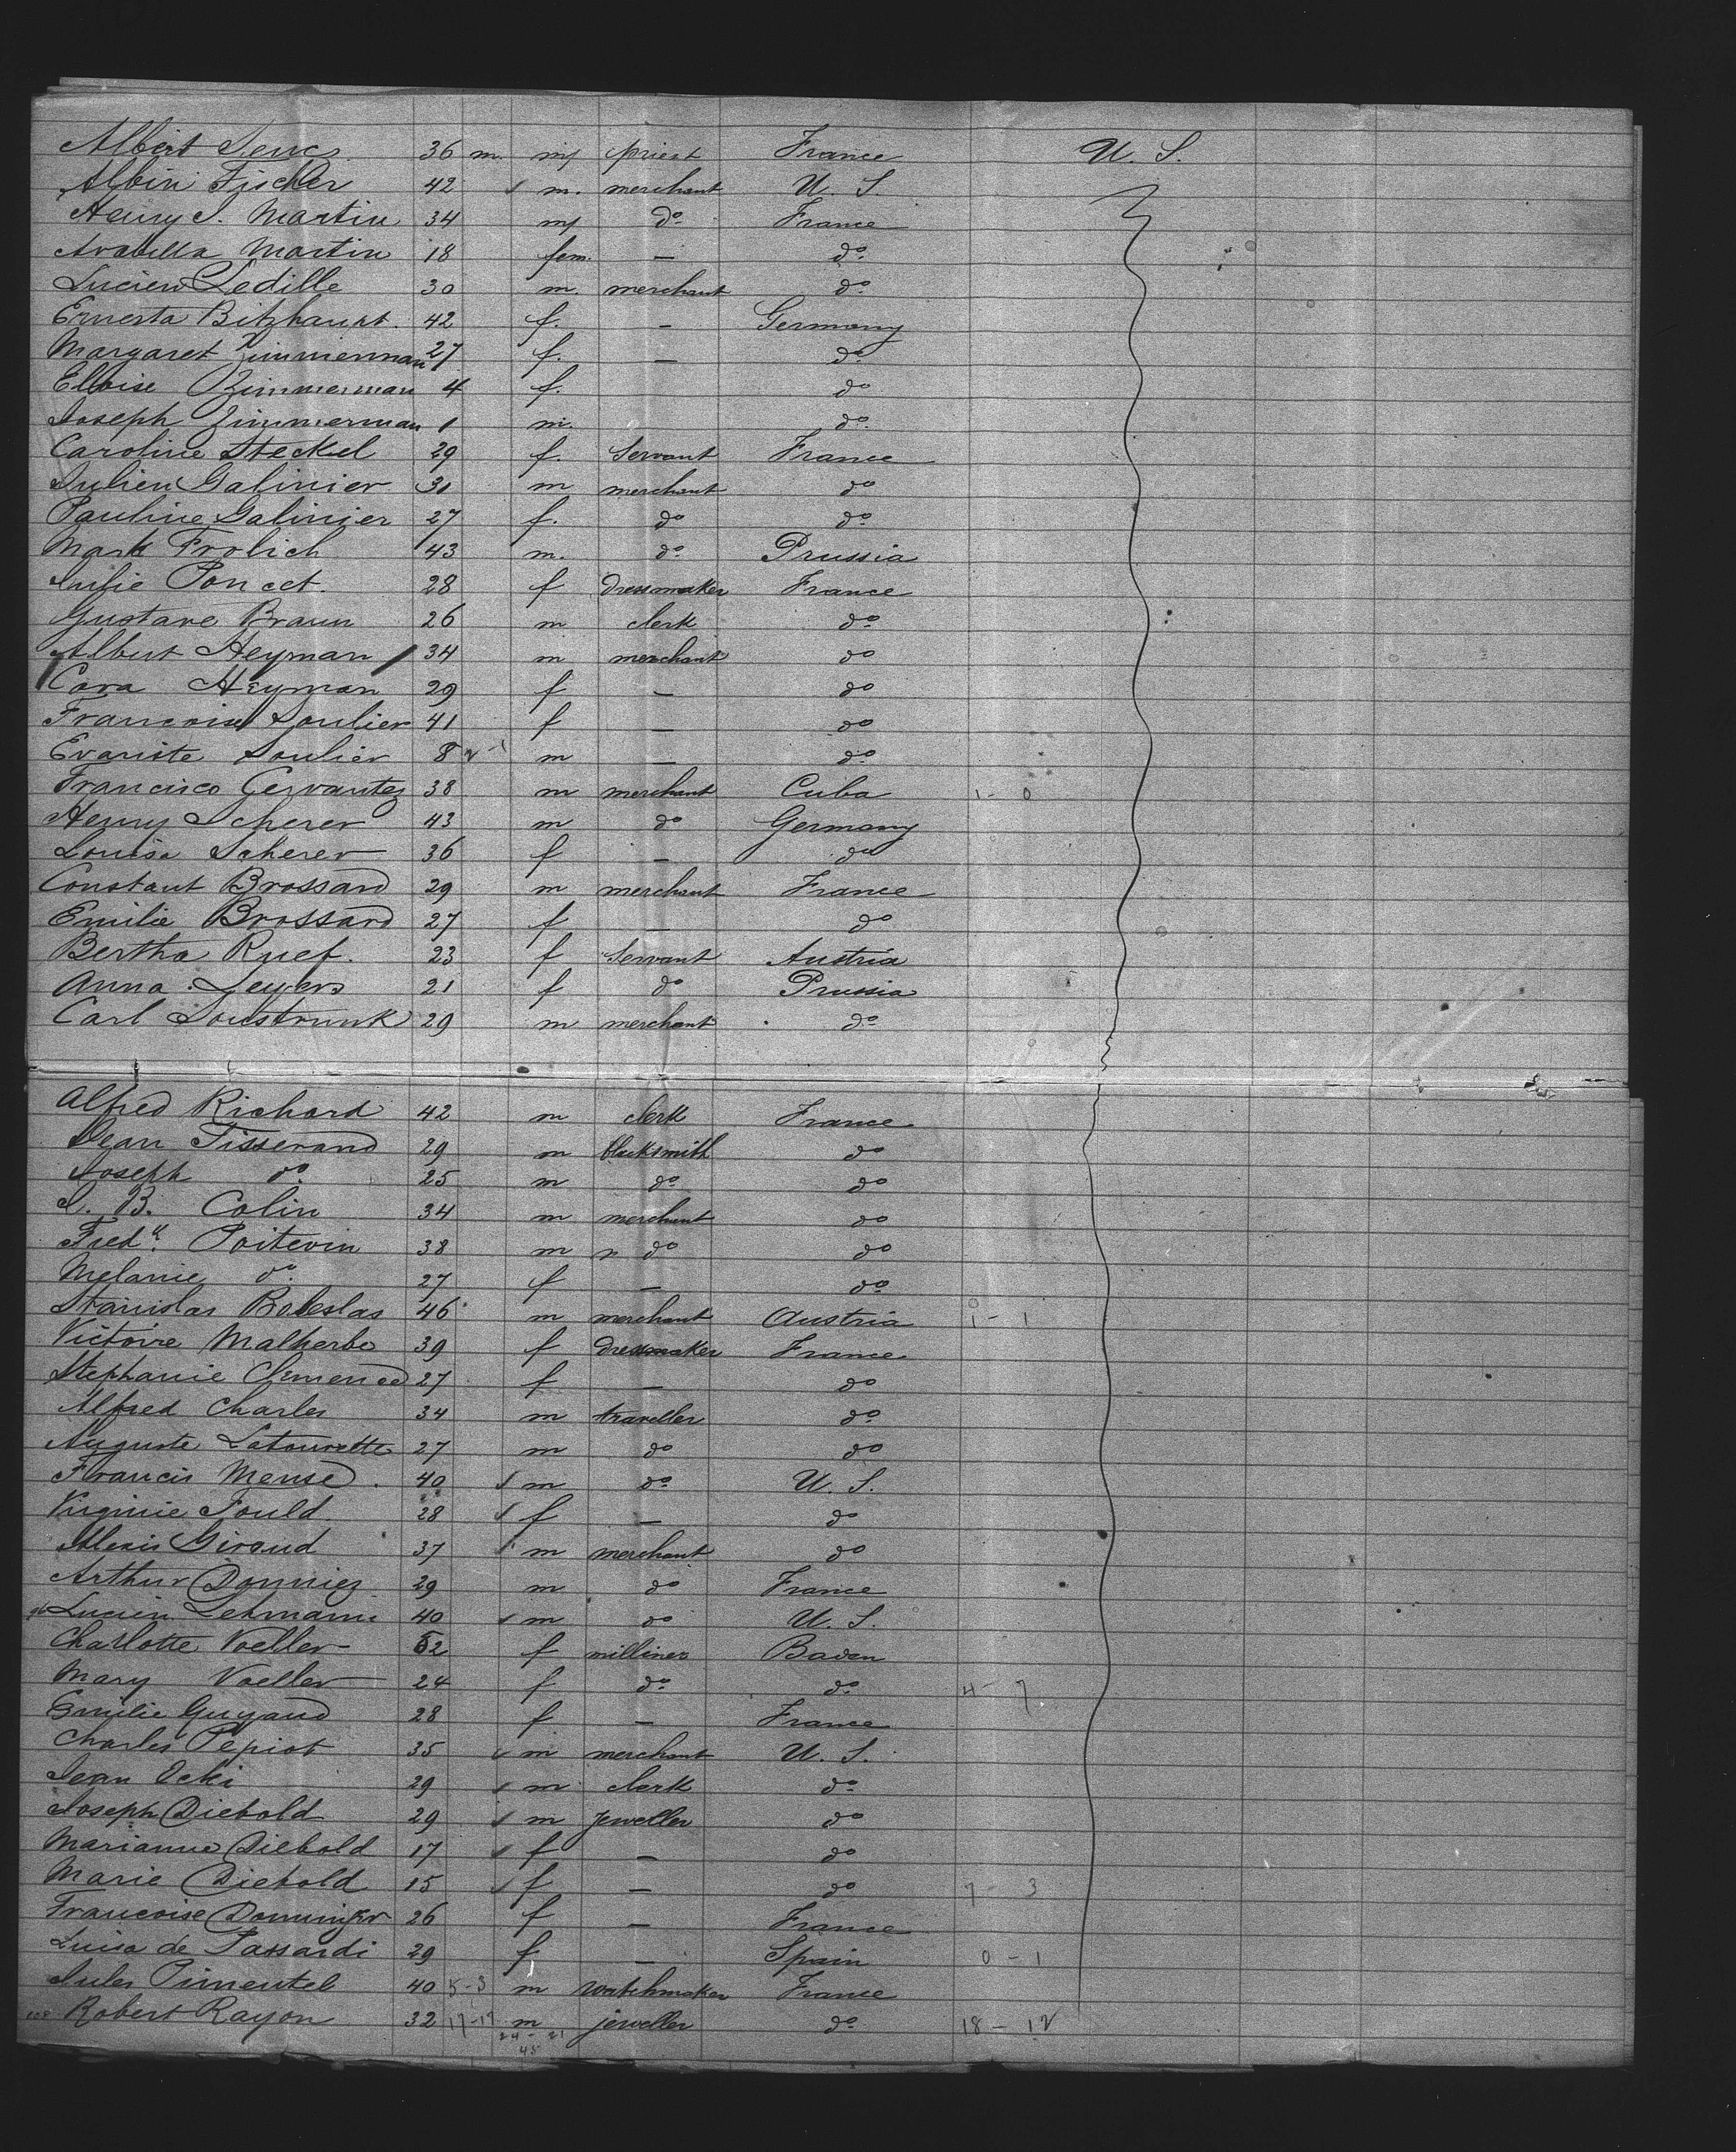 Albert 36 m. m priest France U. S.
Albin Fischer 42 m. merchant U. S
Henry J. Martin 34 m do France
Arabella Martin 18 fem. — do
Lucien Ledille 30 m. merchant do
Ernesta Bitzhaupt. 42 f. — Germany
Margaret Zimmerman 27 f. — do
Eloise Zimmerman 4 f. do
Joseph Zimmerman 1 m. do
Caroline Steckel 29 f. Servant France
Julien Galinier 31 m merchant do
Pauline Galinier 27 f. do do
Mark Frolich 43 m. do Prussia
Julie Poncet. 28 f Dressmaker France
Gustave Braun 26 m clerk do
Albert Heyman 34 m merchant do
Cora Heyman 29 f — do
Francoise Soulier 41 f — do
Evariste Soulier 8 2-1 m — do
Francisco Cervantez 38 m merchant Cuba 1- 0
Henry Scherer 43 m do Germany
Louisa Scherer 36 f — do
Constant Brossard 29 m merchant France
Emilie Brossard 27 f — do
Bertha Ruef. 23 f Servant Austria
Anna Leyers 21 f do Prussia
Carl Soustrunk 29 m merchant do
Alfred Richard 42 m clerk France
Jean Tisserand 29 m blacksmith do
Joseph do. 25 m do do
J. B. Colin 34 m merchant do
Fredk. Poitevin 38 m do do
Melanie do. 27 f — do
Stanislas Boleslas 46 m merchant Austria 1 - 1
Victoire Malherbe 39 f Dressmaker France
Stephanie Clemence 27 f — do
Alfred Charles 34 m traveller do
Auguste Latourette 27 m do do
Francis Mense 40 m do U. S.
Virginie Fould 28 f — do
Alexis Giraud 37 m merchant do
Arthur Donniez 29 m do France
Lucien Lehmann 40 m do U. S.
Charlotte Voeller 52 f milliner Baden
Mary Voeller 24 f do do 4- 7
Emilie Guyaud 28 f — France
Charles Pepiot 35 m merchant U. S.
Jean Ocki 29 m clerk do
Joseph Diebold 29 m jeweller do
Marianne Diebold 17 f — do
Marie Diebold 15 f — do 7- 3
Francoise 26 f — France
Luisa de Passardi 29 f — Spain 0 - 1
Jules Pimentel 40 5-3 m watchmaker France
Robert Rayon 32 17-17 m jeweller do 18 - 12
24 - 21
45